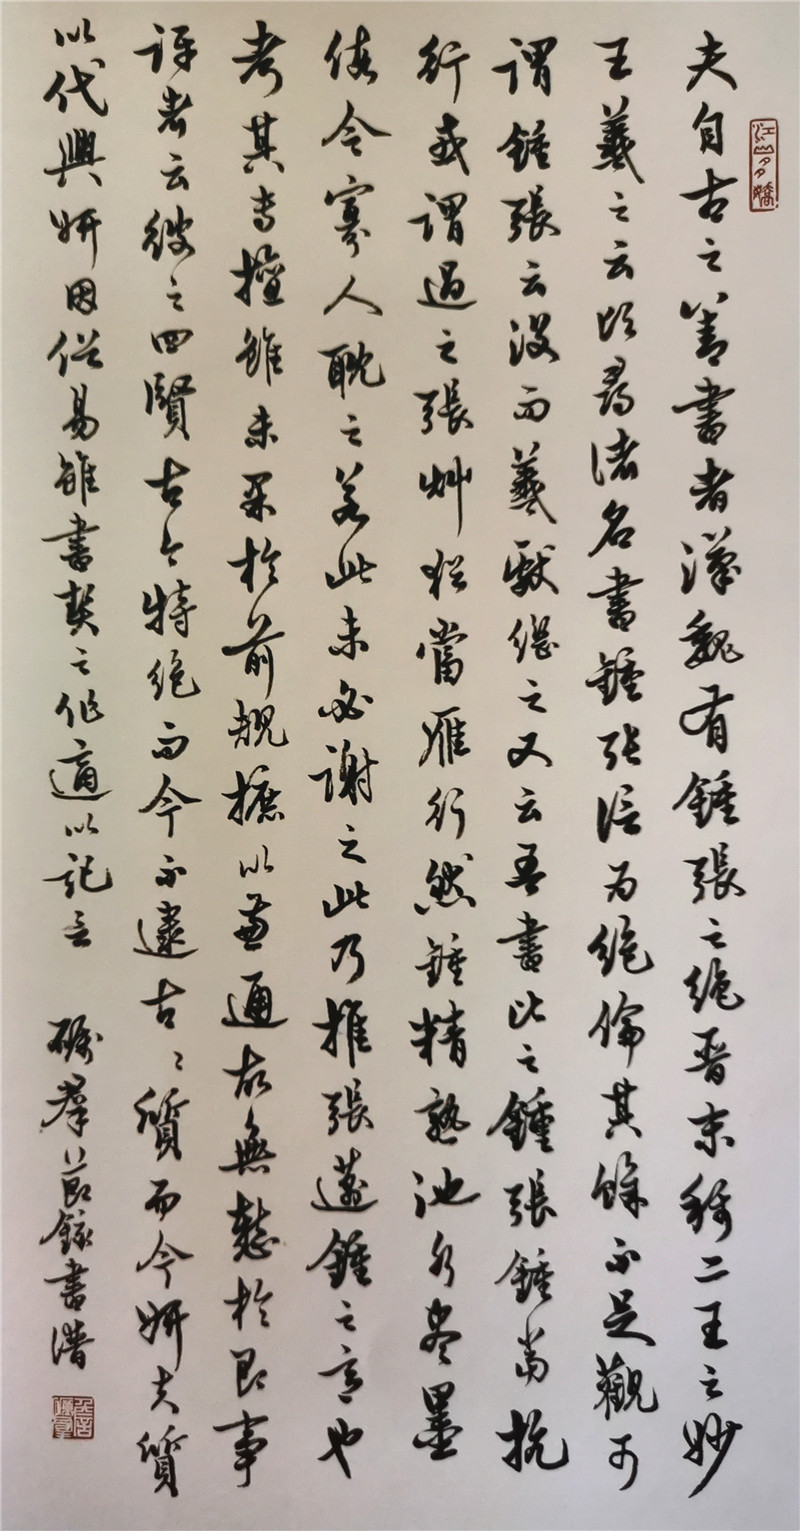 夫自古之善書者漢魏有鍾張之絶晉末稱二王之妙
王羲之云頃尋諸名書鍾張信为絶倫其餘不足觀可
謂鍾張云没而羲獻繼之又云吾書比之鍾張鍾當抗
行或謂過之張艸猶當雁行然鍾精熟池水盡墨
假令寡人耽之若此未必謝之此乃推張邁鍾之意也
考其専擅雖未果於前規摭以兼通故無慙於即事
評者云彼之四賢古今特絶而今不逮古〻質而今妍夫質
以代興妍因俗易雖書契之作適以記言
羣節録書譜
江山多嬌